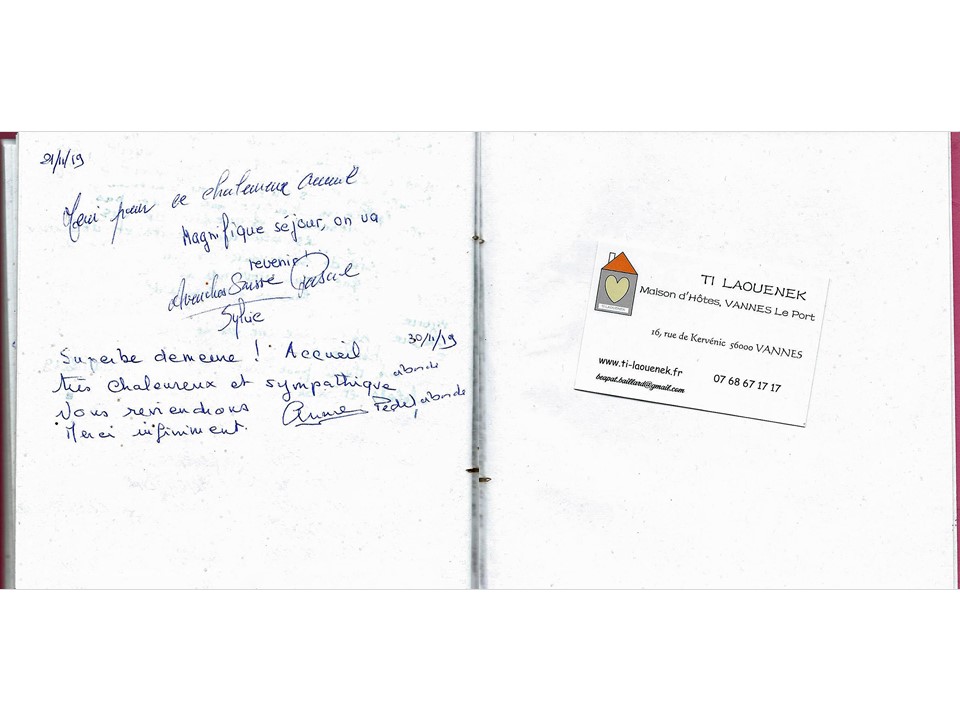 21/11/19
Merci pour ce chaleureux accueil
Magnifique séjour, on va
revenir!
Avenches Suisse Pascal
Sylvie
30/11/19
Superbe demeure ! Accueil
très chaleureux et sympathique
Nous reviendrons
Merci infiniment.
Anne
TI LAOUENEK
Maison d'Hôtes, VANNES Le Port
16, rue de Kervénic 56000 VANNES
www.ti-laouenek.fr
07 68 67 17 17
beapat.baillard@gmail.com